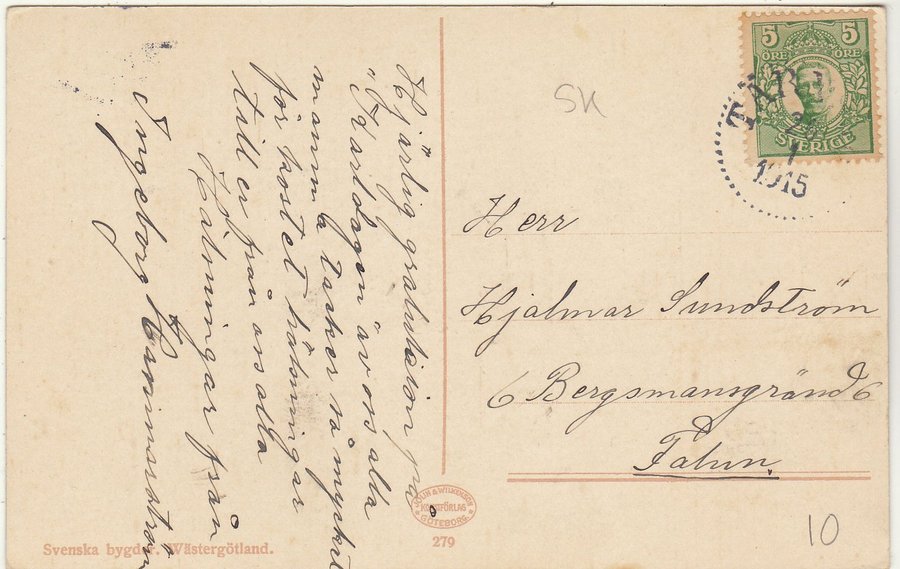 Hjärlig gratulation på
"Karldagen av oss alla
mamma tacker så mycket
för kortet hälsningar
till er från oss alla
Hälningar från
Ingeborg
SK
5 5
ÖRE ÖRE
SVERIGE
TÄRN
1
1915
Herr
Hjalmar Sundström
6 Bergsmansgränd 6
Falun.
JOLIN & WILKENSON
KONSTFÖRLAG
GÖTEBORG.
279
Svenska bygder. Wästergötland.
10